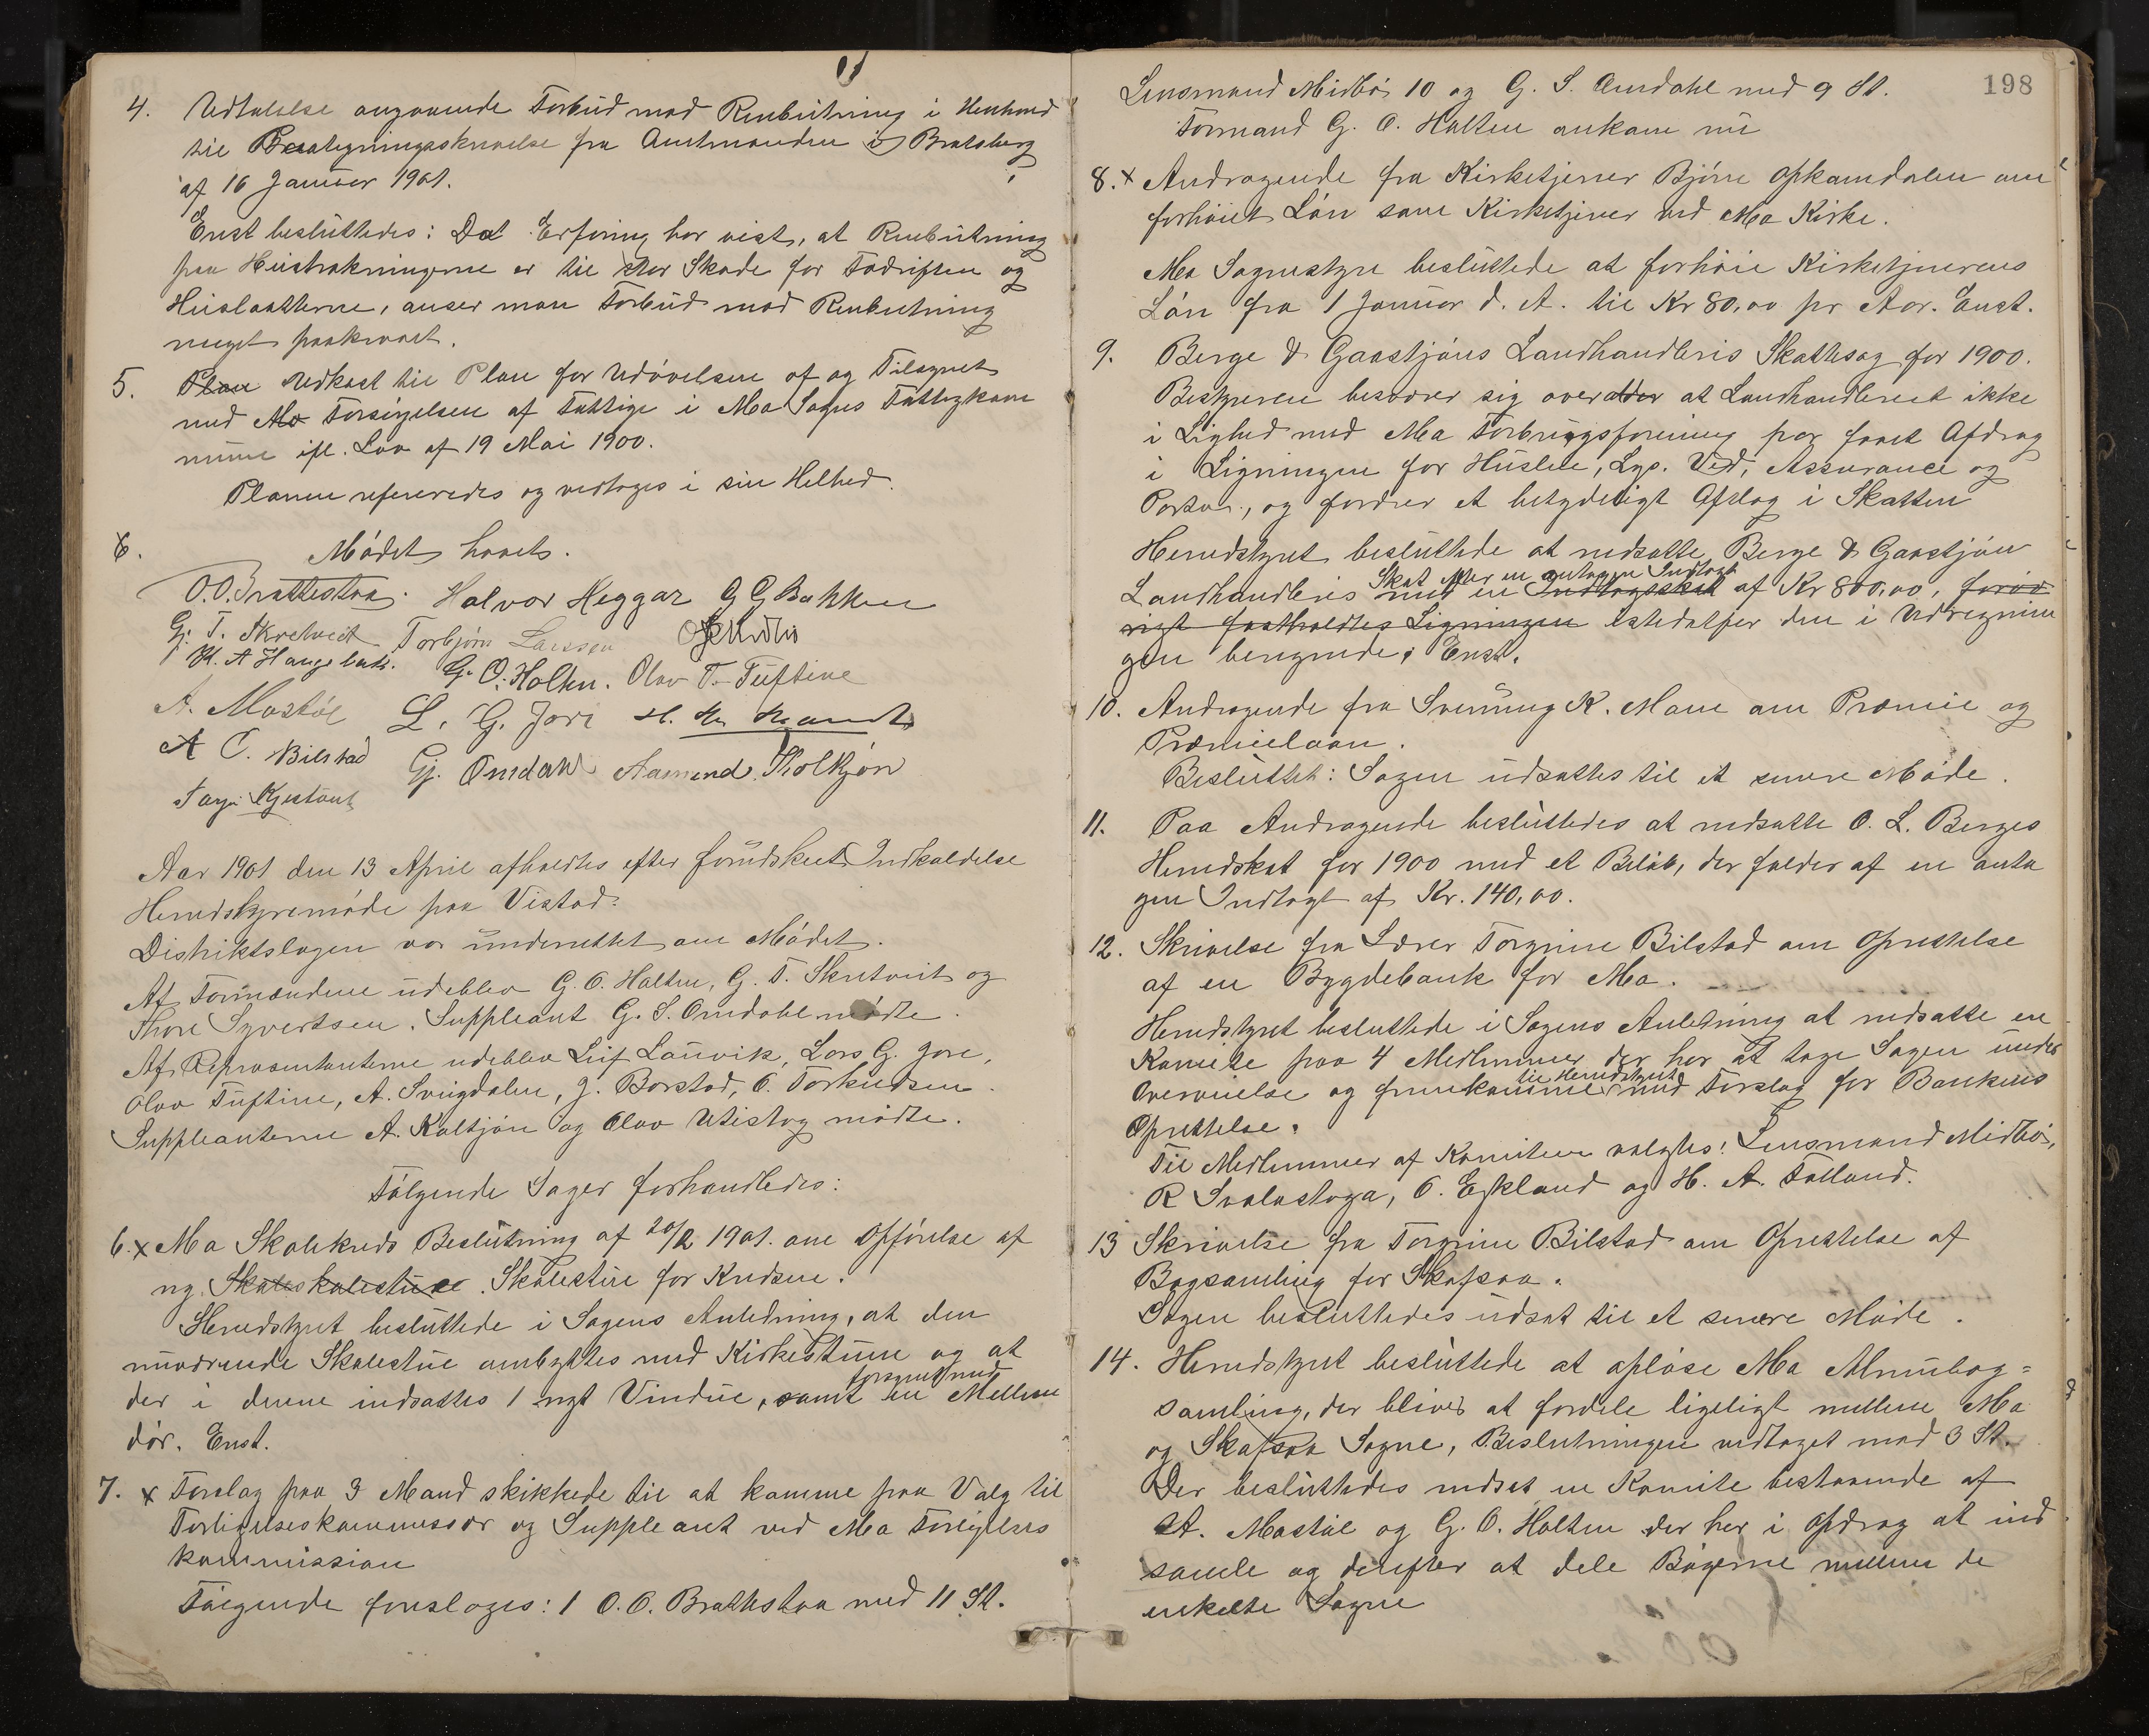 4. Udtalelse angaaende Forbud mod Renbeitning i Henhold
til Paategningsskrivelse fra Amtmanden i Bratsberg
af 16 Januar 1901.
Enst besluttedes: Da Erfaring har vist, at Renbeitning
paa Heistrækningerne er til stor Skade for Fædriften og
Heislaatterne, anser man Forbud mod Renbeitning
meget paakrævet.
5. Plan Udkast til Plan for Udøvelsen af og Tilsynet
med Mo Forsørgelsen af Fattige i Mo Sogns Fattigkom
mune ifl. Lov af 19 Mai 1900.
Planen refereredes og vedtoges i sin Helhed.
6. Mødet hævet.
O.O. Brattestaa. Halvor Heggar G G Bakken
G. T. Skretveit Torbjørn Laussen
H. A Haugebak. G. O. Holten. Olav T. Tuftine
A. Mostøl L. G. Jore H. H.
A O. Bilstad Gj. Omdahl Aamund Kholtjøn
Aar 1901 den 13 April afholdtes efter forudskeet Indkaldelse
Herredstyremøde paa Vistad.
Distriktslægen var underrettet om Mødet.
Af Formændene udeblev G. O. Holten, G. T. Skretveit og
Thore Syvertsen. Suppleant G. S. Omdahl mødte.
Af Repræsentanterne udeblev Leif Lauvik, Lars G. Jore,
Olav Tuftine, A. Svingdalen, J. Borstad, O. Torkudsen.
Suppleanterne A. Kaltjøn og Olav Utistog mødte.
Følgende Sager forhandledes:
6. x Mo Skolekreds Beslutning af 20/2 1901. om Opførelse af
ny Skoleskolestue. Skolestue for Kredsen.
Herredstyret besluttede i Sagens Anledning, at den
nuværende Skolestue ombyttes med Kirkestuen og at
forsynet med
der i denne indsættes 1 nyt Vindue, samt en Mellem
dør. Enst.
7. x Forslag paa 3 Mænd skikkede til at komme paa Valg til
Forligelseskommissær og Suppleant ved Mo Forligelses
kommission
Følgende foresloges: 1 O. O. Brattestaa med 11 St.
198
Lensmand Midbø 10 og G. S. Omdahl med 9 St.
Formand G. O. Holten ankom nu
8. x Andragende fra Kirketjener Bjørn Opkamdalen om
forhøiet Løn som Kirketjener ved Mo Kirke.
Mo Sognestyre besluttede at forhøie Kirketjenerens
Løn fra 1 Januar d. A. til Kr 80,00 pr Aar. Enst.
9. Berge & Gaastjøns Landhandleris Skattesag for 1900.
Bestyreren besværer sig over at Landhandleriet ikke
i Lighed med Mo Forbrugsforening har faaet Afdrag
i Ligningen for Husleie, Lys, Ved, Assurance og
Porto, og fordrer et betydeligt Afslag i Skatten
Herredstyret besluttede at nedsætte Berge & Gaastjøn
Skat efter en antagen Indtægt
Landhandleris med en Indtægtsskat af Kr 800,00, forøv
rigt fastholdtes Ligningen istedetfor den i Udregnin
gen benyttede. Enst.
10. Andragende fra Svenung K. Moen om Præmie og
Præmielaan.
Besluttet: Sagen udsættes til et senere Møde.
11. Paa Andragende besluttedes at nedsætte O. L. Berges
Herredskat for 1900 med et Beløb, der falder af en anta
gen Indtægt af Kr. 140,00.
12. Skrivelse fra Lærer Torgrim Bilstad om Oprettelse
af en Bygdebank for Mo.
Herredstyret besluttede i Sagens Anledning at nedsætte en
Komite paa 4 Medlemmer der har at tage Sagen under
til Herredstyret
Overveielse og fremkomme med Forslag for Bankens
Oprettelse.
Til Medlemmer af Komiteen valgtes: Lensmand Midbø,
R Svalastoga, O. Eskland og H. A. Felland.
13 Skrivelse fra Torgrim Bilstad om Oprettelse af
Bogsamling for Skafsaa.
Sagen besluttedes udsat til et senere Møde.
14. Herredstyret besluttede at opløse Mo Almuebog=
samling, der bliver at fordele ligeligt mellem Mo
og Skafsaa Sogne, Beslutningen vedtaget mod 3 St.
Der besluttedes nedsat en Komite bestaaende af
A. Mostøl og G. O. Holten der har i Opdrag at ind
samle og derefter at dele Bøgerne mellem de
enkelte Sogne